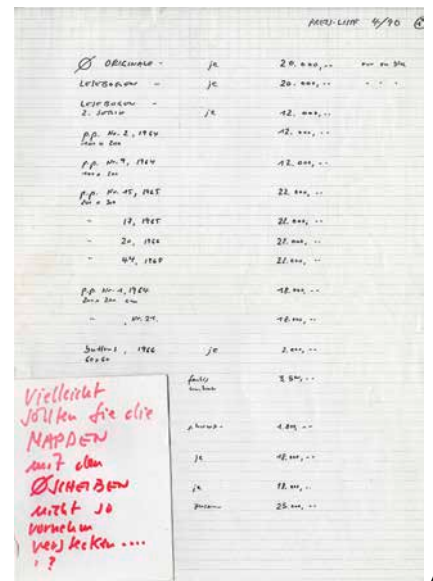 PREIS-LISTE 4/90
Ø ORIGINALE - je 20.000,--
LESEBOGEN - je 20.000,--
LESEBOGEN -
2. SERIE je 12.000,--
p.p. Nr. 2, 1964 12.000,--
p.p. Nr. 9, 1964 12.000,--
p.p. Nr. 15, 1965 22.000,--
" 17, 1965 22.000,--
" 20, 1966 22.000,--
" 44, 22.000,--
p.p. Nr. 1, 1964 18.000,--
" , Nr. 21. 18.000,--
buttons, 1966 je 2.000,--
60x60
je 18.000,--
je 18.000,--
25.000,--
Vielleicht
sollten Sie die
MAPPEN
mit den
ØSCHEIBEN
nicht so
vornehm
verstecken....
?